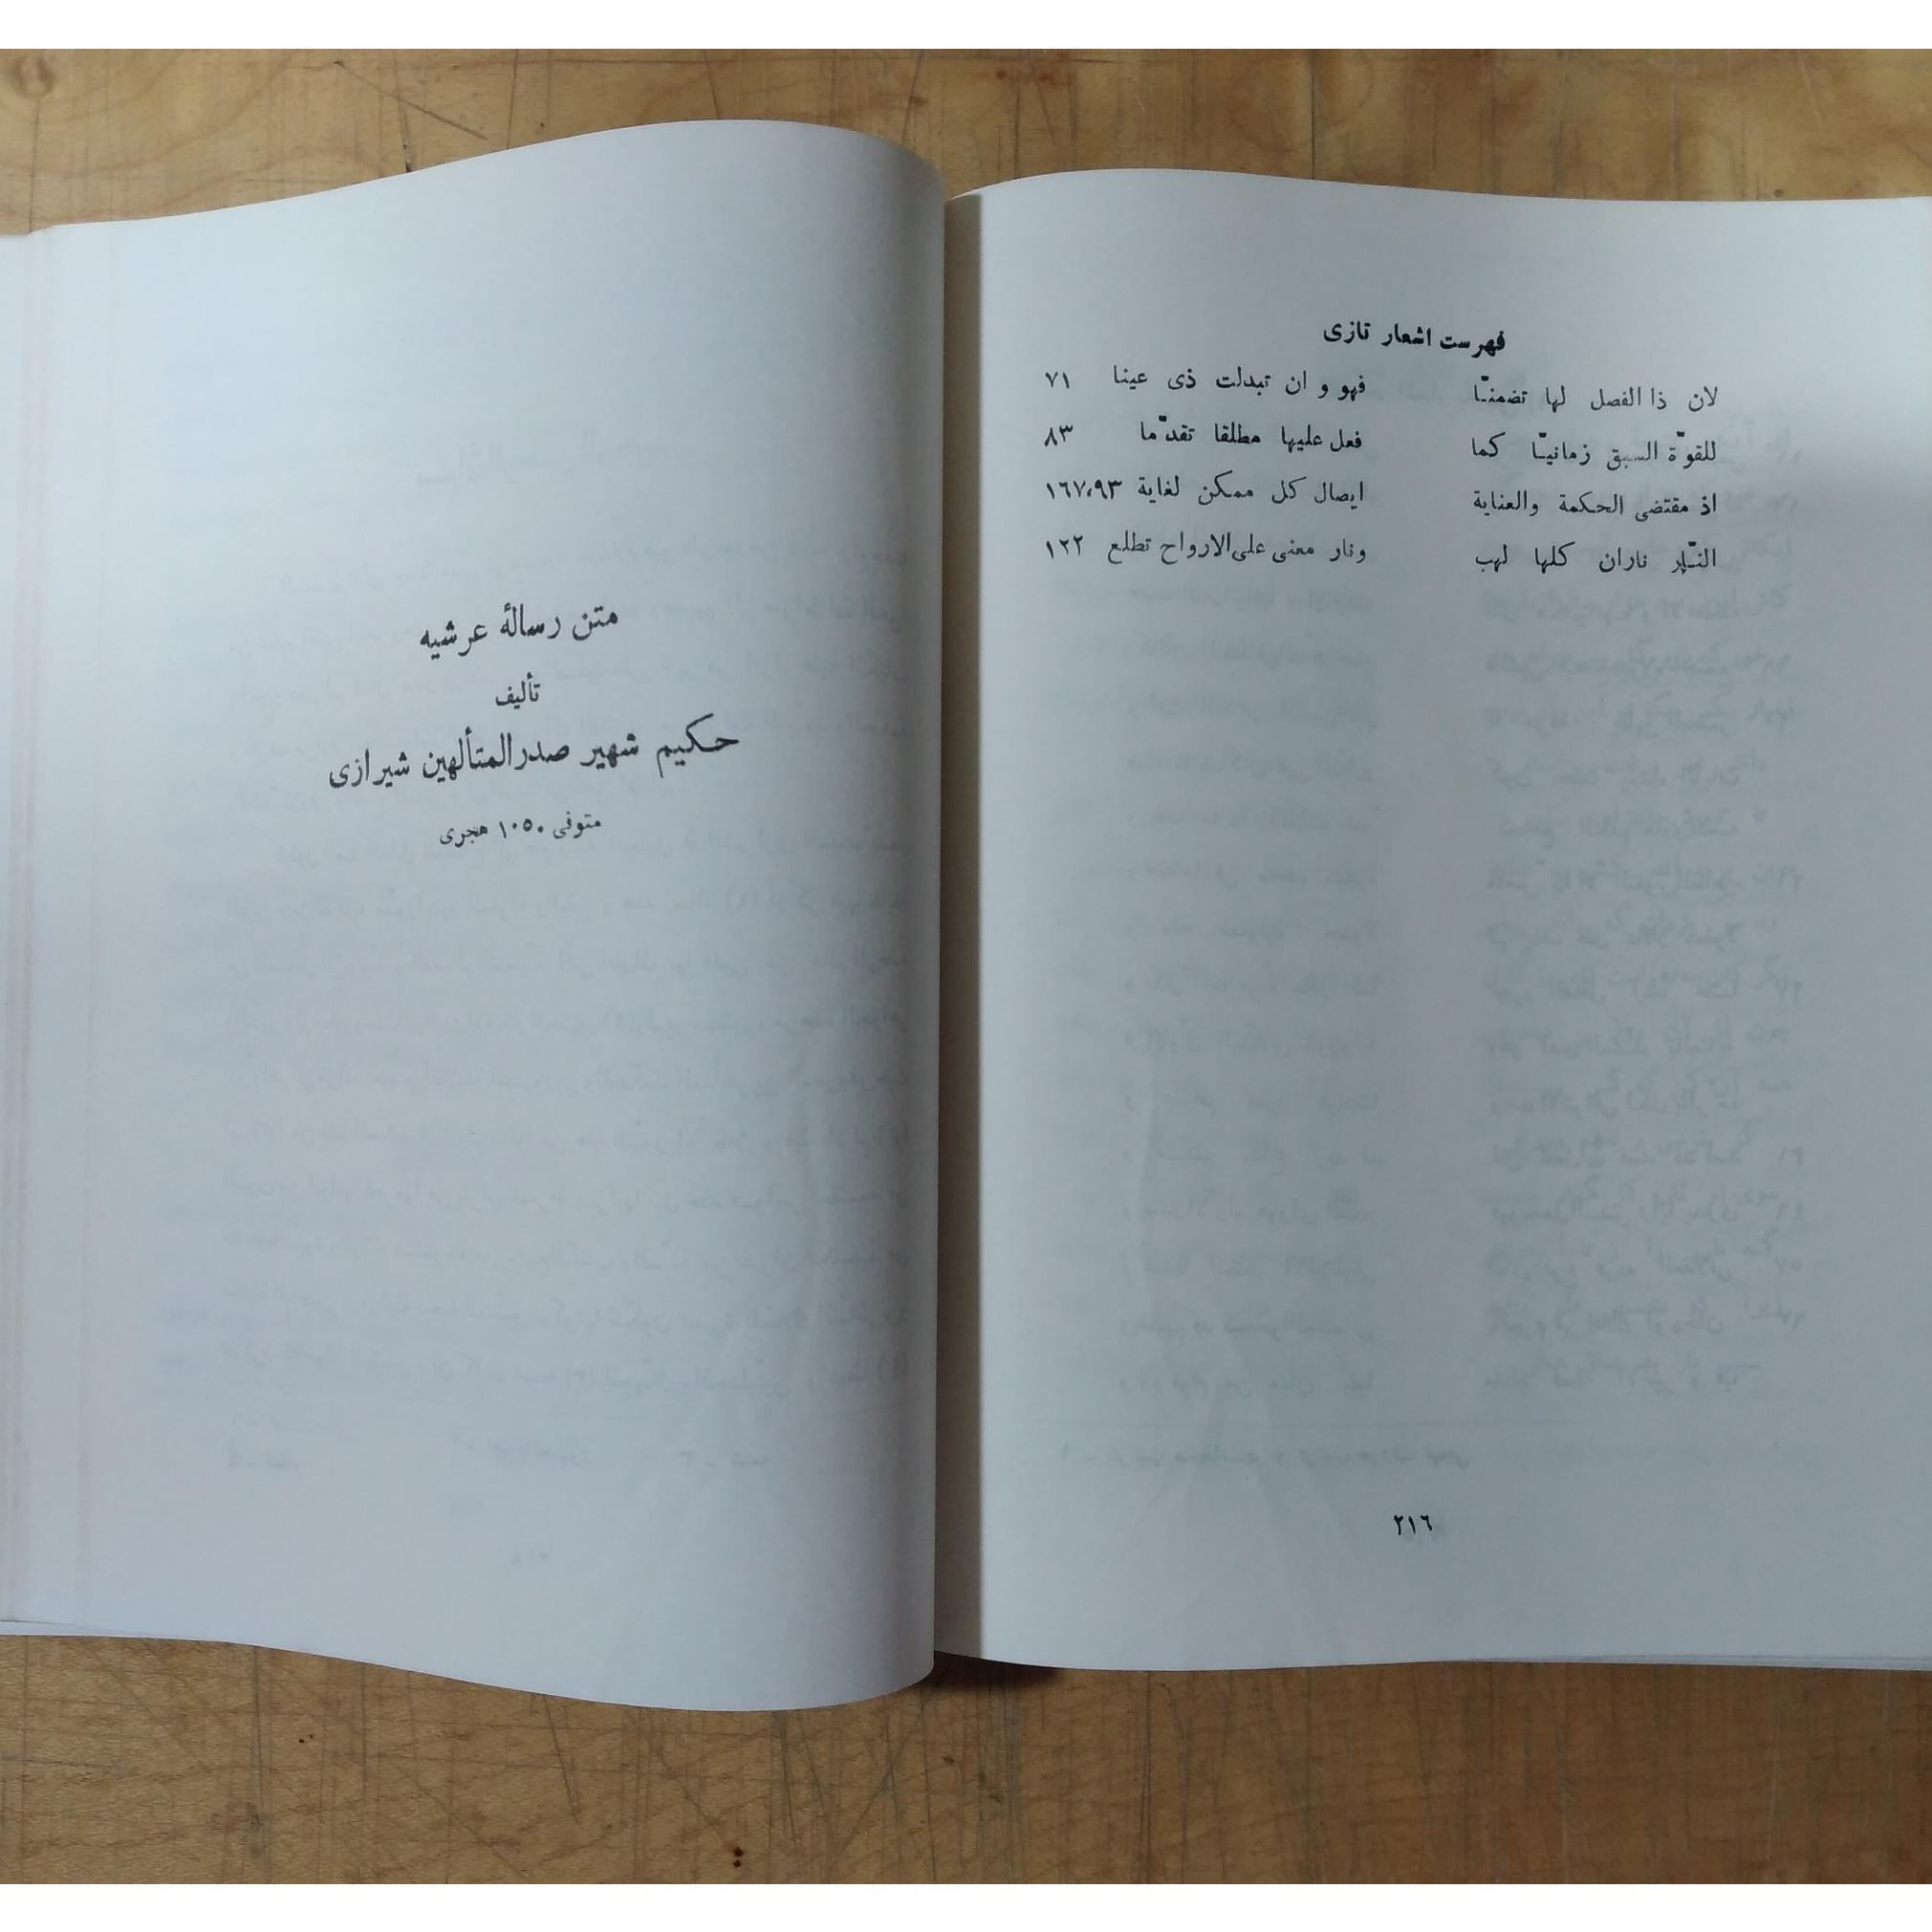 فهرست اشعار تازی
لان ذا الفصل لها تضمنّا فهو و ان تبدلت ذی عینا ۷۱
للقوّة السبق زمانیّا کما فعل علیها مطلقا تقدّما ۸۳
اذ مقتضی الحکمة والعنایة ایصال کل ممکن لغایة ۱۶۷،۹۳
النّار ناران کلها لهب ونار معنی علی الارواح تطلع ۱۲۲
۲۱۶
متن رسالهٔ عرشیه
تألیف
حکیم شهیر صدرالمتألهین شیرازی
متوفی ۱۰۵۰ هجری